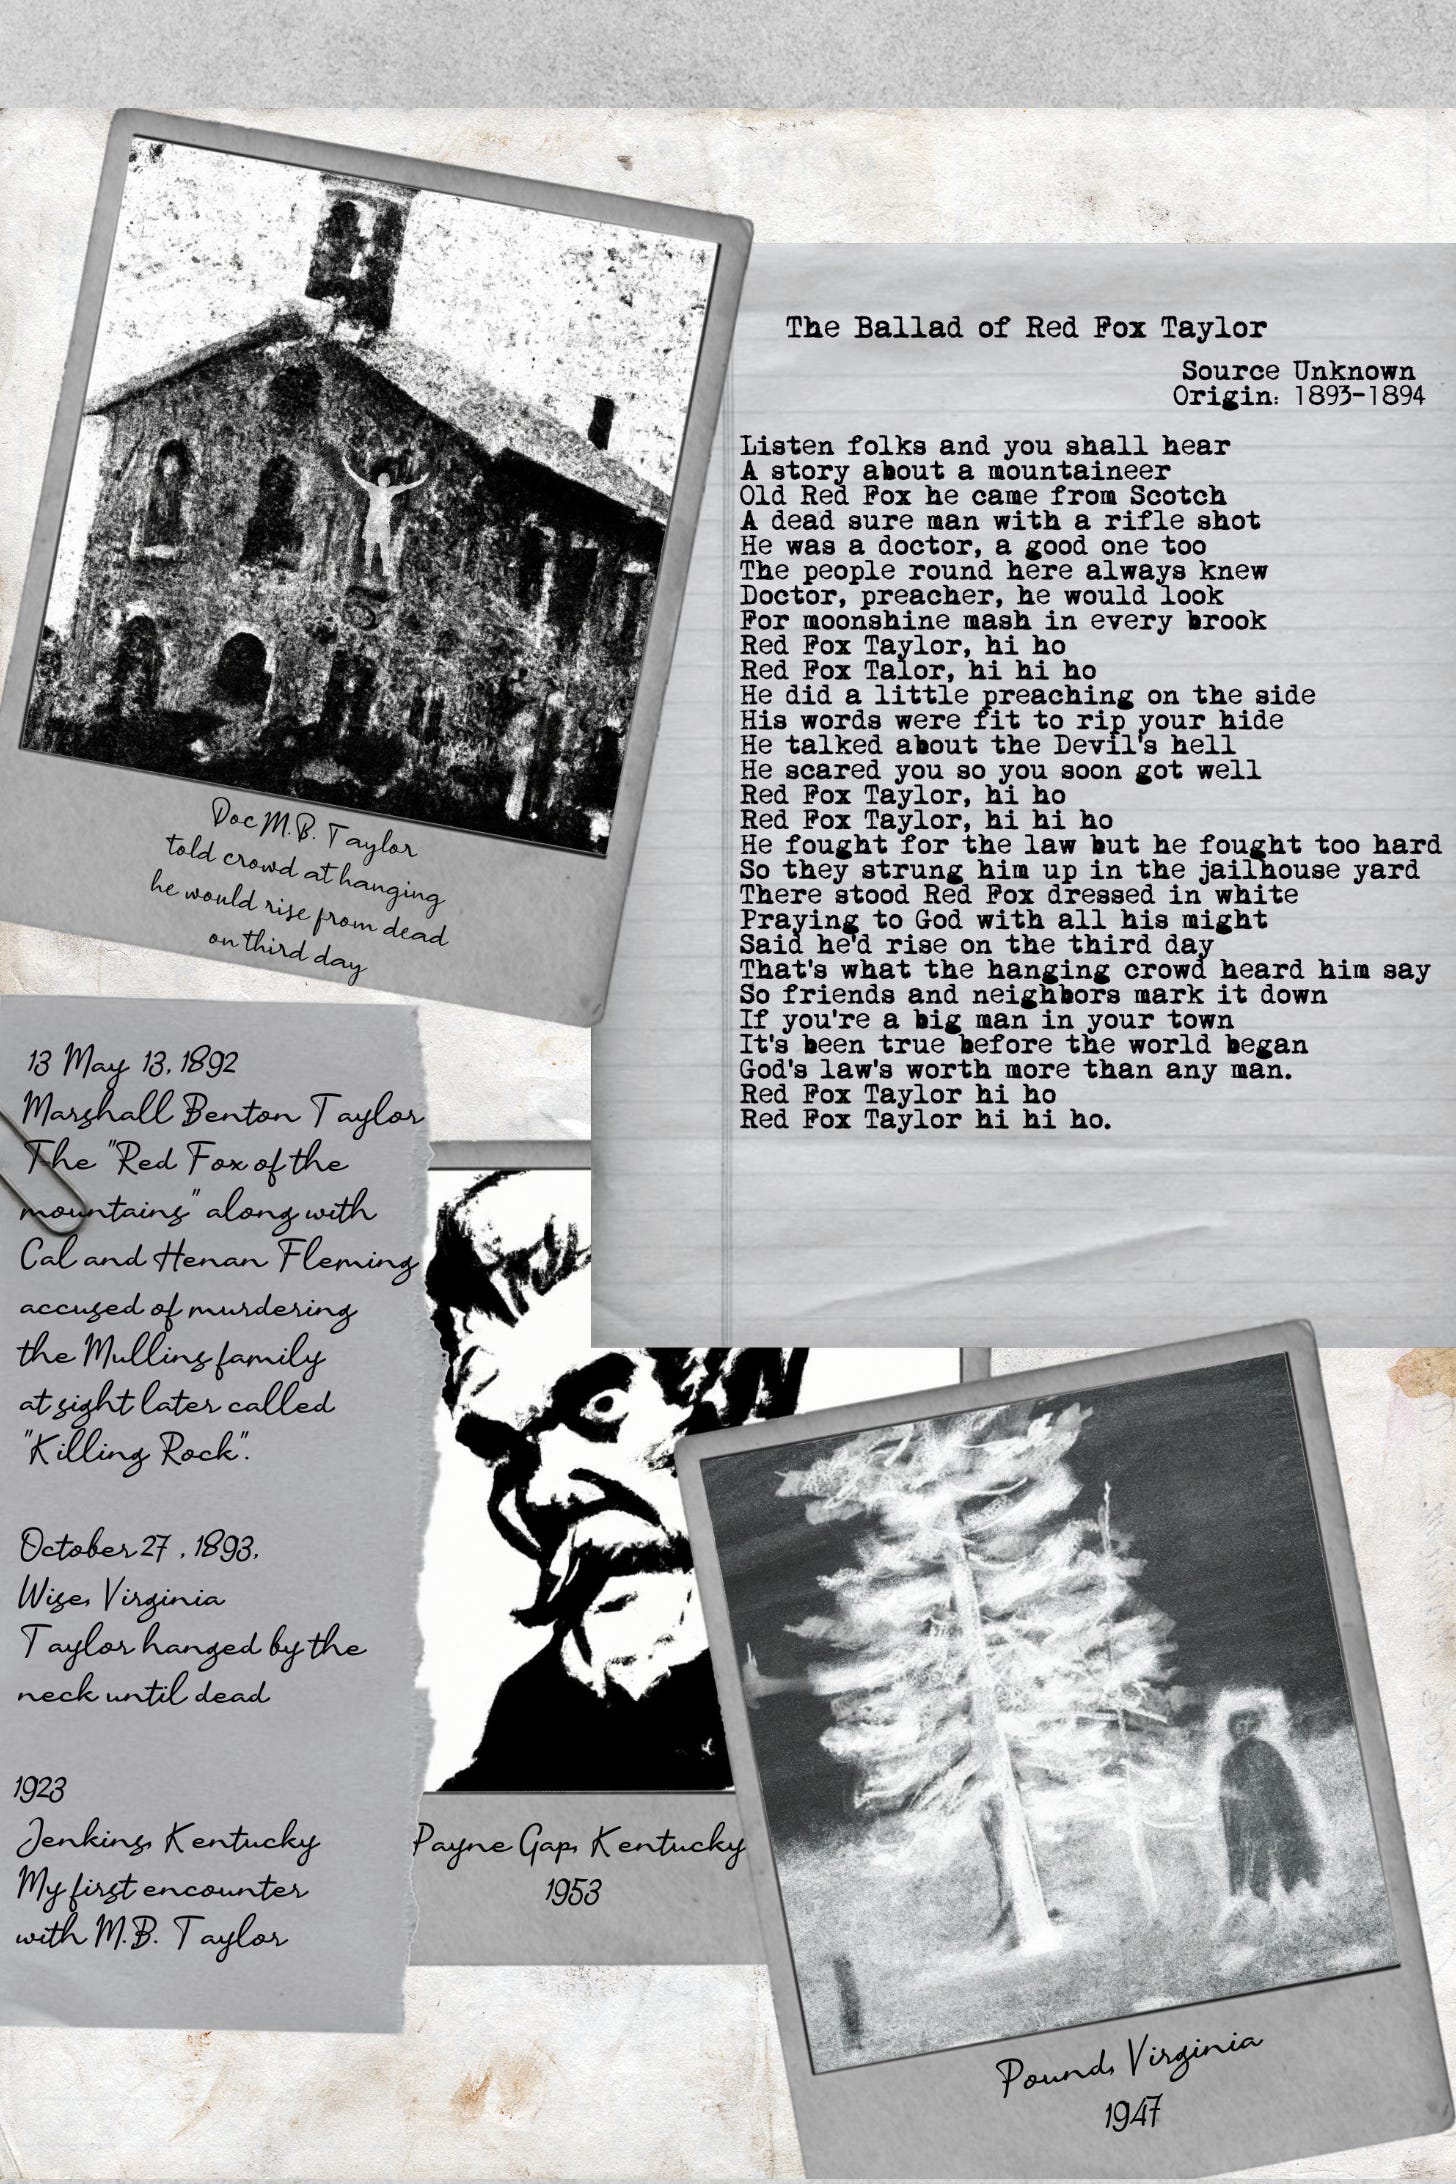 Doc M.B. Taylor
told crowd at hanging
he would rise from dead
on third day
The Ballad of Red Fox Taylor
Source Unknown
Origin: 1893-1894
Listen folks and you shall hear
A story about a mountaineer
Old Red Fox he came from Scotch
A dead sure man with a rifle shot
He was a doctor, a good one too
The people round here always knew
Doctor, preacher, he would look
For moonshine mash in every brook
Red Fox Taylor, hi ho
Red Fox Talor, hi hi ho
He did a little preaching on the side
His words were fit to rip your hide
He talked about the Devil's hell
He scared you so you soon got well
Red Fox Taylor, hi ho
Red Fox Taylor, hi hi ho
He fought for the law but he fought too hard
So they strung him up in the jailhouse yard
There stood Red Fox dressed in white
Praying to God with all his might
Said he'd rise on the third day
That's what the hanging crowd heard him say
So friends and neighbors mark it down
If you're a big man in your town
It's been true before the world began
God's law's worth more than any man.
Red Fox Taylor hi ho
Red Fox Taylor hi hi ho.
13 May 13, 1892
Marshall Benton Taylor
The "Red Fox of the
mountains" along with
Cal and Henan Fleming
accused of murdering
the Mullins family
at sight later called
"Killing Rock".
October 27 , 1893,
Wise, Virginia
Taylor hanged by the
neck until dead
1923
Jenkins, Kentucky
My first encounter
with M.B. Taylor
Payne Gap, Kentucky
1953
Pound, Virginia
1947